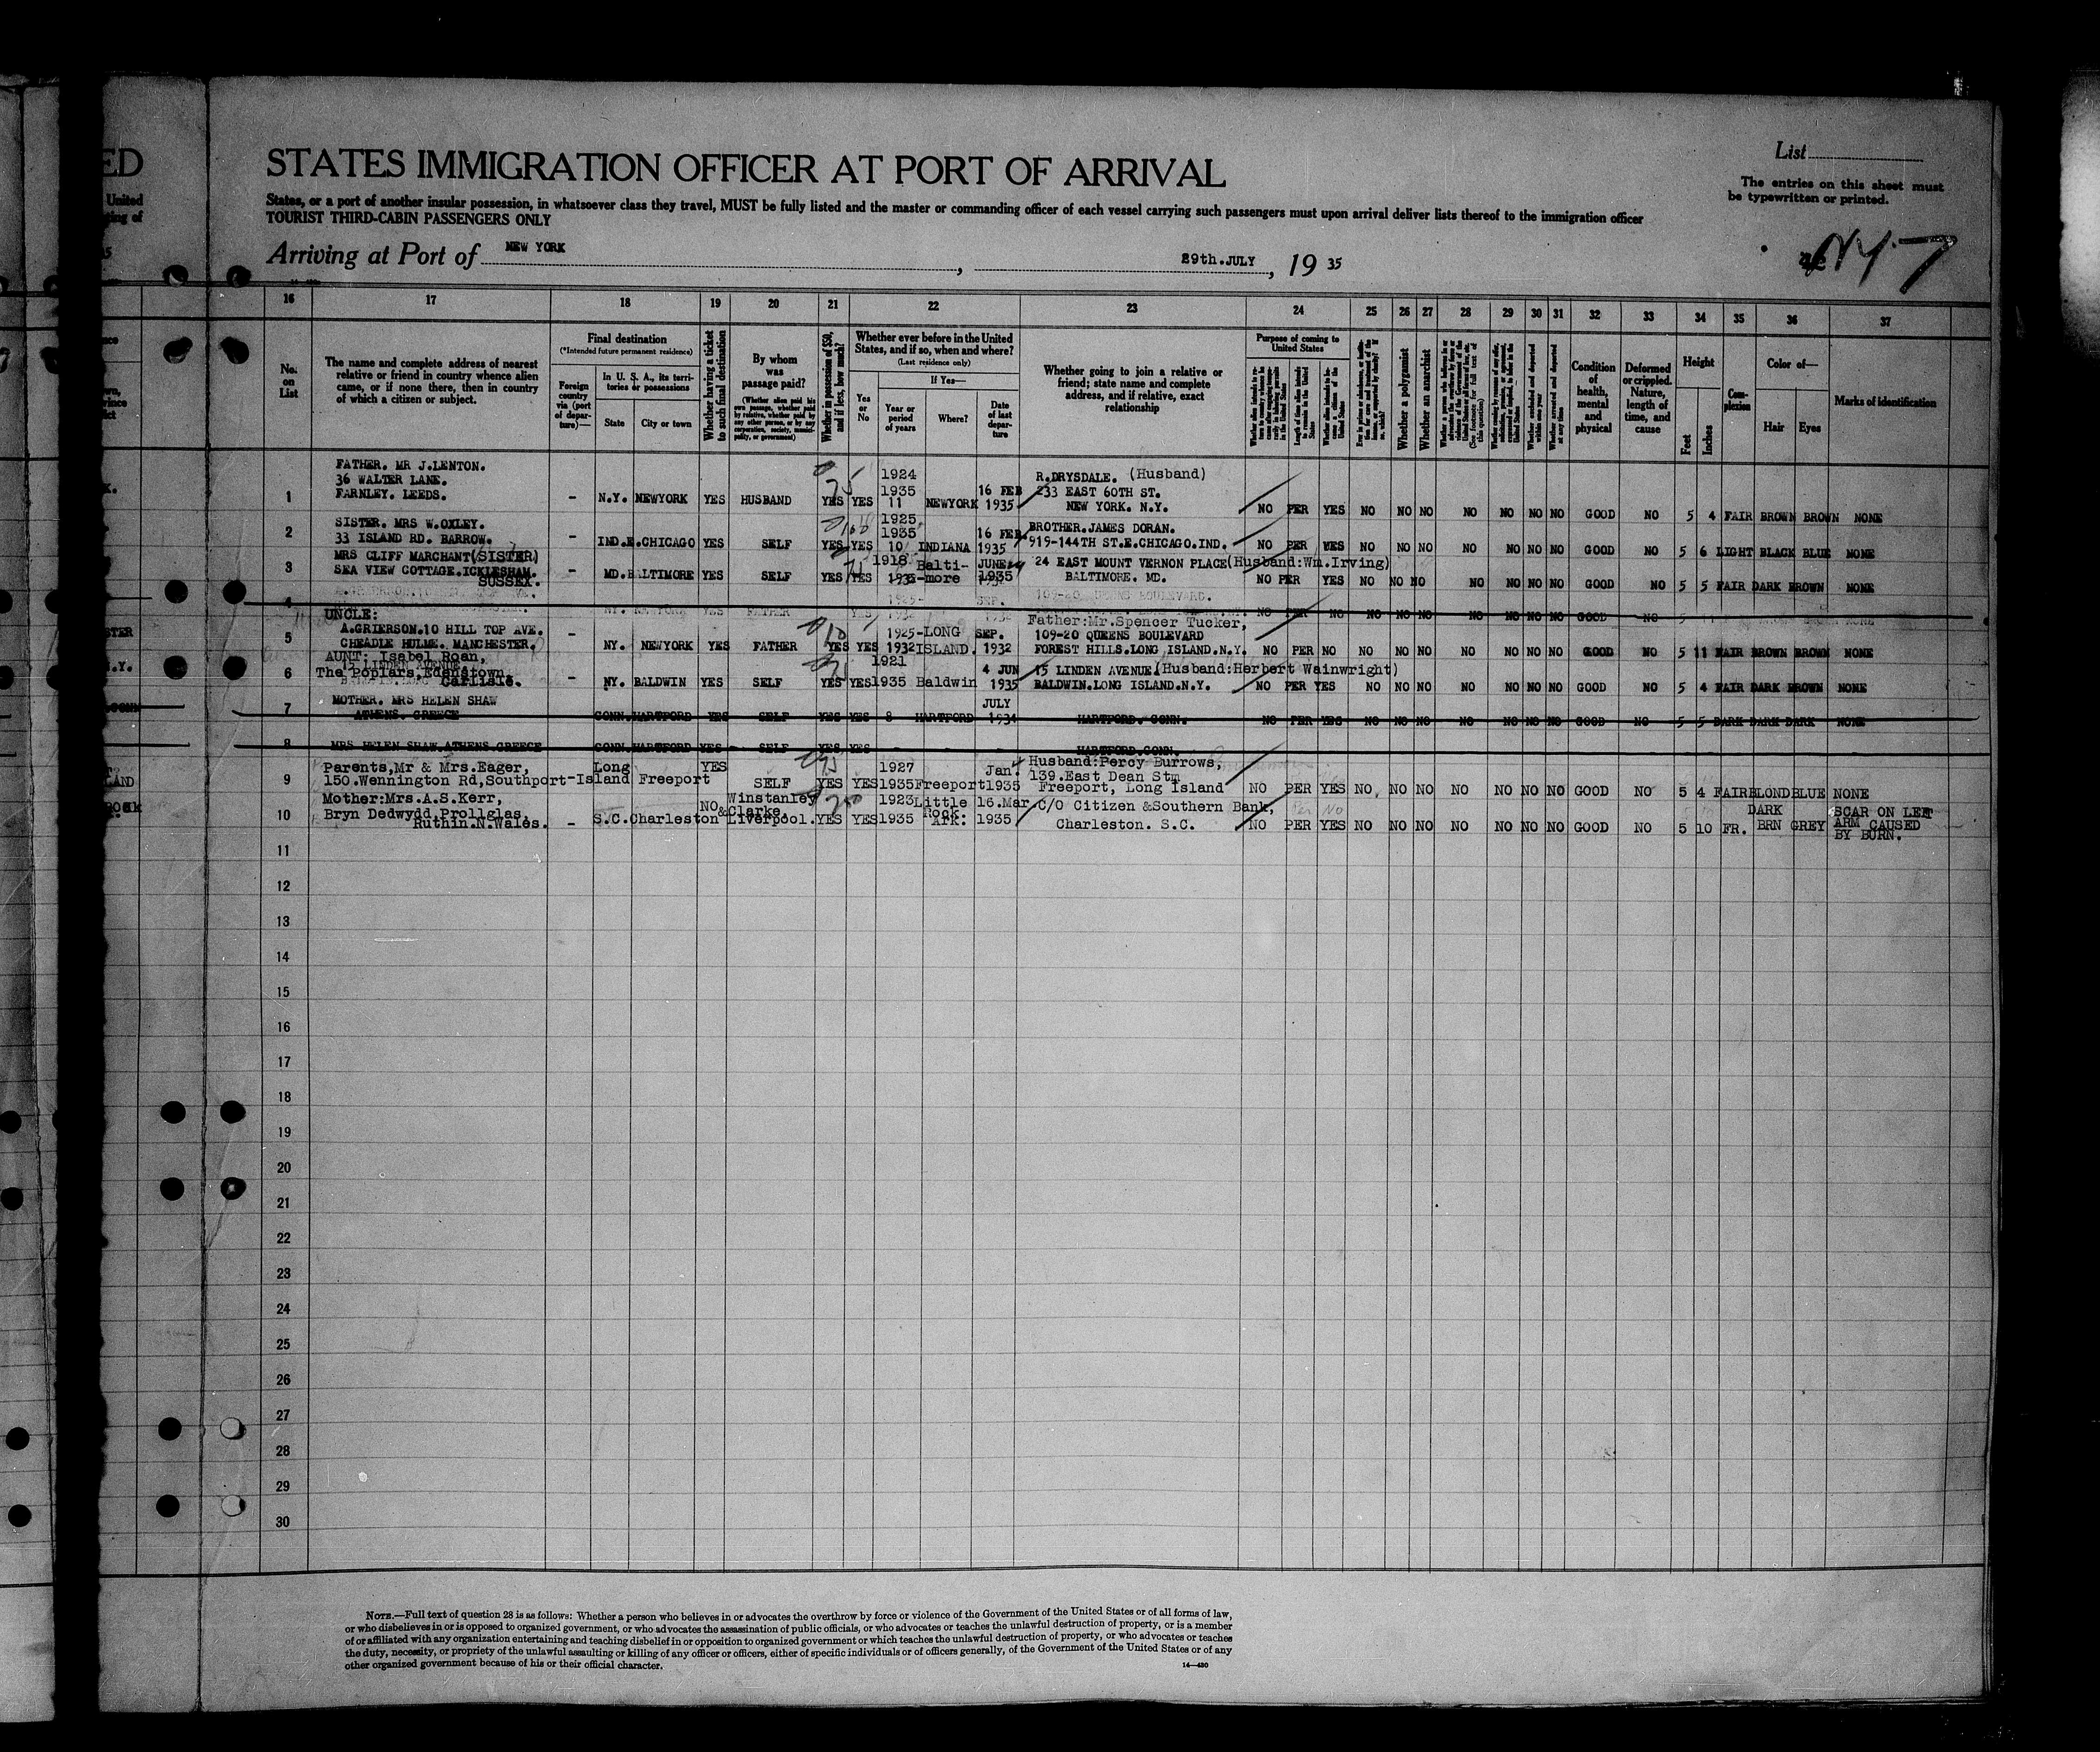 ED
STATES IMMIGRATION OFFICER AT PORT OF ARRIVAL
List
The entries on this sheet must
be typewritten or printed.
United
ting of
States, or a port of another insular possession, in whatsoever class they travel, MUST be fully listed and the master or commanding officer of each vessel carrying such passengers must upon arrival deliver lists thereof to the immigration officer
TOURIST THIRD-CABIN PASSENGERS ONLY
Arriving at Port of NEW YORK, 29th.JULY, 19 35
16 17 18 19 20 21 22 23 24 25 26 27 28 29 30 31 32 33 34 35 36 37
No. on List
The name and complete address of nearest
relative or friend in country whence alien
came, or if none there, then in country
of which a citizen or subject.
Final destination
(*Intended future permanent residence)
Foreign country via (port of departure)—
In U. S. A., its territories or possessions
State
City or town
Whether having a ticket to such final destination
By whom was passage paid?
(Whether alien paid his own passage, whether paid by relative, whether paid by any other person, or by any corporation, society, municipality, or government)
Whether in possession of $50, and if less, how much?
Whether ever before in the United
States, and if so, when and where?
(Last residence only)
Yes or No
If Yes—
Year or period of years
Where?
Date of last departure
Whether going to join a relative or
friend; state name and complete
address, and if relative, exact
relationship
Purpose of coming to United States
Whether a polygamist
Whether an anarchist
Condition of health, mental and physical
Deformed or crippled. Nature, length of time, and cause
Height
Feet
Inches
Complexion
Color of—
Hair
Eyes
Marks of identification
FATHER. MR J.LENTON.
36 WALTER LANE.
1 FARNLEY. LEEDS. - N.Y. NEWYORK YES HUSBAND YES YES 1924 1935 11 NEWYORK 16 FEB 1935 R.DRYSDALE. (Husband) 233 EAST 60TH ST. NEW YORK. N.Y. NO PER YES NO NO NO NO NO NO NO GOOD NO 5 4 FAIR BROWN BROWN NONE
SISTER. MRS W.OXLEY.
2 33 ISLAND RD. BARROW. - IND.E.CHICAGO YES SELF YES YES 1925 1935 10 INDIANA 16 FEB 1935 BROTHER.JAMES DORAN. 919-144TH ST.E.CHICAGO.IND. NO PER YES NO NO NO NO NO NO NO GOOD NO 5 6 LIGHT BLACK BLUE NONE
MRS CLIFF MARCHANT(SISTER)
3 SEA VIEW COTTAGE.ICKLESHAM. SUSSEX. - MD.BALTIMORE YES SELF YES YES 1918 1935 Balti-more JUNE 1935 24 EAST MOUNT VERNON PLACE(Husband:Wm.Irving) BALTIMORE. MD. NO PER YES NO NO NO NO NO NO NO GOOD NO 5 5 FAIR DARK BROWN NONE
4 NY. NEWYORK YES FATHER YES 1925- SEP. 109-20 QUEENS BOULEVARD. NO PER NO NO NO NO NO NO NO NO GOOD NO
UNCLE:
5 A.GRIERSON.10 HILL TOP AVE. CHEADLE HULME. MANCHESTER. - NY. NEWYORK YES FATHER YES YES 1925-1932 LONG ISLAND. SEP. 1932 Father:Mr.Spencer Tucker, 109-20 QUEENS BOULEVARD FOREST HILLS.LONG ISLAND.N.Y. NO PER NO NO NO NO NO NO NO NO GOOD NO 5 11 FAIR BROWN BROWN NONE
AUNT: Isabel Roan,
6 The Poplars,Edenstown, Carlisle. - NY. BALDWIN YES SELF YES YES 1921 1935 Baldwin 4 JUN 1935 15 LINDEN AVENUE(Husband:Herbert Wainwright) BALDWIN.LONG ISLAND.N.Y. NO PER YES NO NO NO NO NO NO NO GOOD NO 5 4 FAIR DARK BROWN NONE
MOTHER. MRS HELEN SHAW
7 ATHENS. GREECE CONN.HARTFORD YES SELF YES YES 8 HARTFORD JULY 1934 HARTFORD. CONN. NO PER YES NO NO NO NO NO NO NO GOOD NO 5 5 DARK DARK DARK NONE
8 MRS HELEN SHAW.ATHENS.GREECE CONN.HARTFORD YES - SELF YES YES HARTFORD.CONN.
Parents,Mr & Mrs.Eager,
9 150.Wennington Rd,Southport- Long Island Freeport YES SELF YES YES 1927 1935 Freeport Jan. 1935 Husband:Percy Burrows, 139.East Dean Stm Freeport, Long Island NO PER YES NO. NO NO NO NO NO NO GOOD NO 5 4 FAIR BLOND BLUE NONE
Mother:Mrs.A.S.Kerr,
10 Bryn Dedwydd,Prollglas, Ruthin.N.Wales. - S.C.Charleston NO Winstanley & Clarke. Liverpool. YES YES 1923 1935 Little Rock Ark: 16.Mar 1935 C/O Citizen &Southern Bank, Charleston. S.C. NO PER YES NO NO NO NO NO NO NO GOOD NO 5 10 FR. DARK BRN GREY SCAR ON LEFT ARM CAUSED BY BURN.
11
12
13
14
15
16
17
18
19
20
21
22
23
24
25
26
27
28
29
30
NOTE.—Full text of question 28 is as follows: Whether a person who believes in or advocates the overthrow by force or violence of the Government of the United States or of all forms of law,
or who disbelieves in or is opposed to organized government, or who advocates the assassination of public officials, or who advocates or teaches the unlawful destruction of property, or is a member
of or affiliated with any organization entertaining and teaching disbelief in or opposition to organized government or which teaches the unlawful destruction of property, or who advocates or teaches
the duty, necessity, or propriety of the unlawful assaulting or killing of any officer or officers, either of specific individuals or of officers generally, of the Government of the United States or of any
other organized government because of his or their official character.
14—480